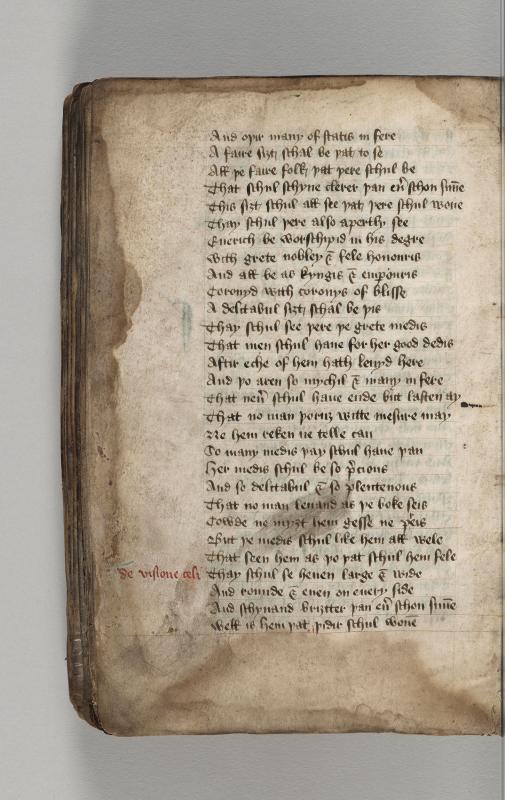 And oþir many of statis in fere
A faire siȝt schal be þat to se
Aƚƚ þe faire folk þat þere schul be
That schul schyne clerer þan eu͛ schon sūne
This siȝt schul aƚƚ see þat þere schul wone
Thay schul þere also apertly see
Euerich be worschipid in his degre
With grete nobley & fele honouris
And aƚƚ be as kyngis & empouris
Coronyd with coronys of blisse
A delitabul siȝt schal be þis
Thay schul see þere þe grete medis
That men schul haue for her good dedis
Aftir eche of hem hath leuyd here
And þo aren so mychil & many in fere
That neu͛ schul haue ende but lasten ay
That no man þoruȝ witte mesure may
Ne hem reken ne telle can
So many medis þay schul haue þan
Her medis schul be so p͛cious
And so delitabul & so plenteuous
That no man leuand as þe boke seis
Cowde ne myȝt hem gesse ne p͛eis
But þe medis schul like hem aƚƚ wele
That seen hem as þo þat schul hem fele
de visione celi Thay schul se heuen large & wide
And rounde & euen on euery side
And schynand briȝtter þan eu͛ schon sūne
Weƚƚ is hem þat þidir schul wone